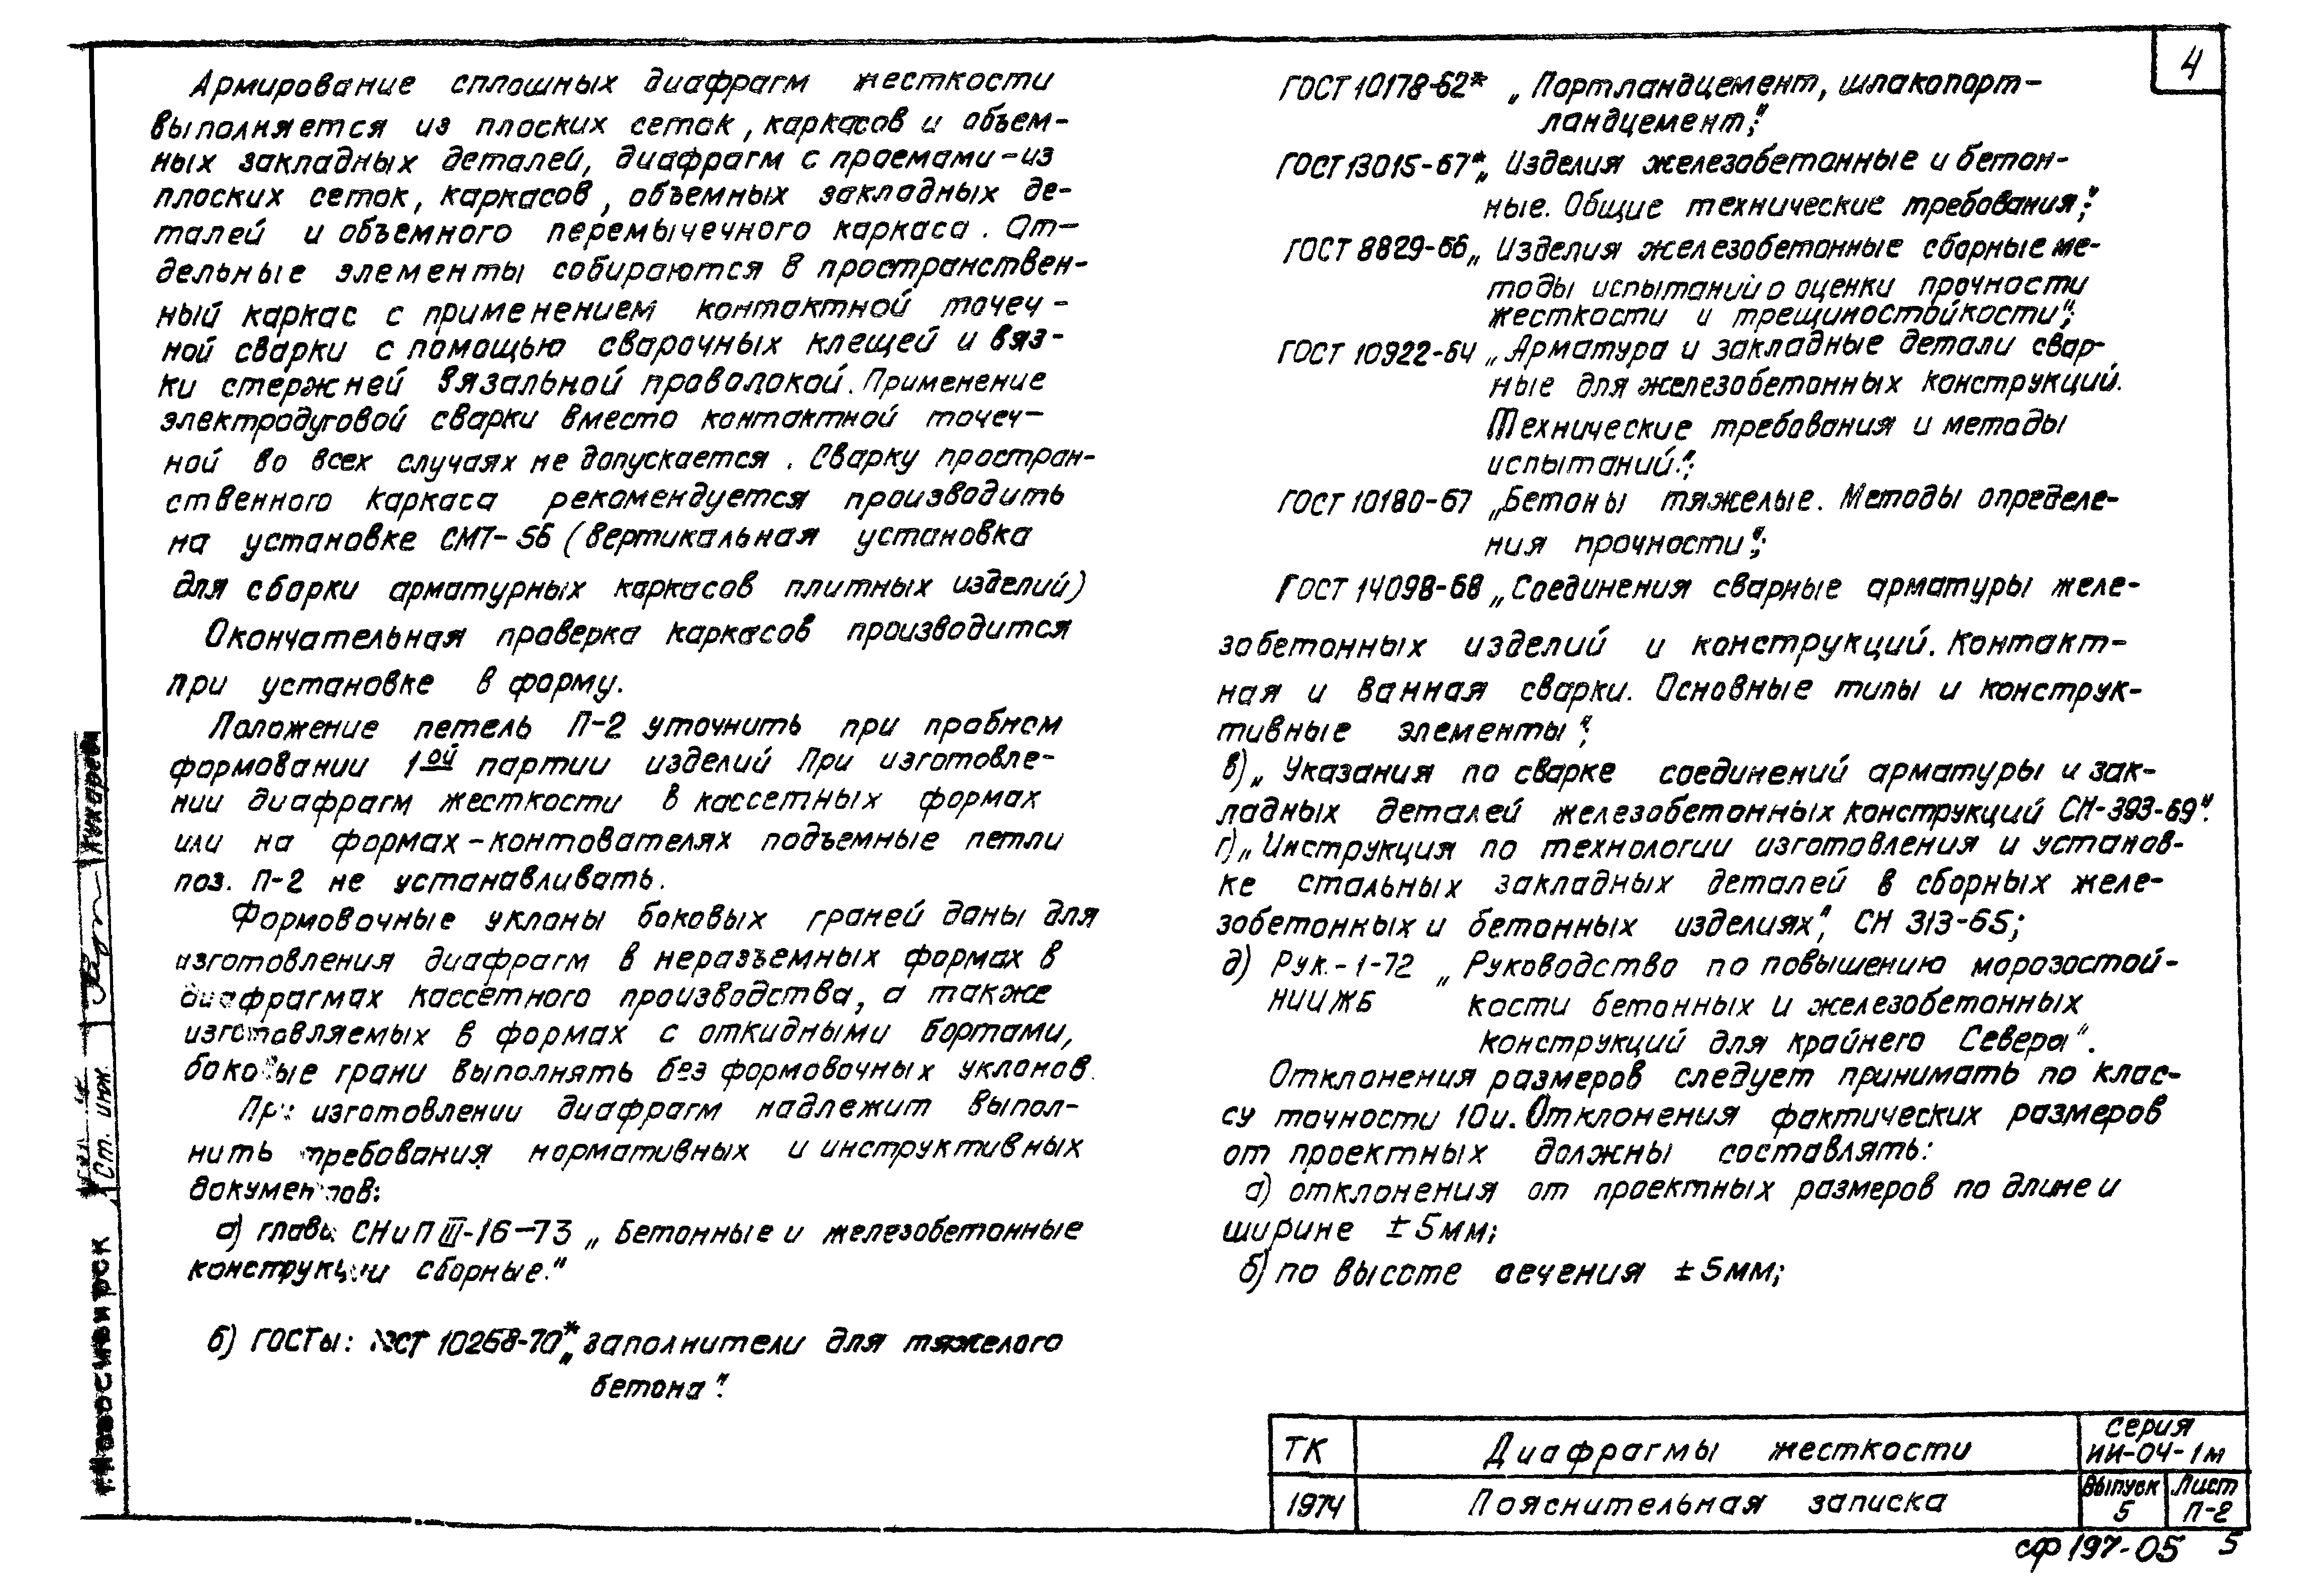 4
Армирование сплошных диафрагм жесткости
выполняется из плоских сеток, каркасов и объем-
ных закладных деталей, диафрагм с проемами-из
плоских сеток, каркасов, объемных закладных де-
талей и объемного перемычечного каркаса. От-
дельные элементы собираются в пространствен-
ный каркас с применением контактной точеч-
ной сварки с помощью сварочных клещей и вяз-
ки стержней вязальной проволокой. Применение
электродуговой сварки вместо контактной точеч-
ной во всех случаях не допускается. Сварку простран-
ственного каркаса рекомендуется производить
на установке СМТ-56 (вертикальная установка
для сборки арматурных каркасов плитных изделий)
Окончательная проверка каркасов производится
при установке в форму.
Положение петель П-2 уточнить при пробном
формовании 1ой партии изделий При изготовле-
нии диафрагм жесткости в кассетных формах
или на формах-контователях подъемные петли
поз. П-2 не устанавливать.
Формовочные уклоны боковых граней даны для
изготовления диафрагм в неразъемных формах в
диафрагмах кассетного производства, а также
изготавляемых в формах с откидными бортами,
боковые грани выполнять без формовочных уклонов.
При изготовлении диафрагм надлежит выпол-
нить требования нормативных и инструктивных
документов:
а) главы СНиП III-16-73 „Бетонные и железобетонные
конструкции сборные."
б) ГОСТы: ГОСТ 10268-70* „заполнители для тяжелого
бетона".
ГОСТ 10178-62* „Портландцемент, шлакопорт-
ландцемент";
ГОСТ 13015-67* „Изделия железобетонные и бетон-
ные. Общие технические требования";
ГОСТ 8829-66 „Изделия железобетонные сборные ме-
тоды испытаний о оценки прочности
жесткости и трещиностойкости";
ГОСТ 10922-64 „Арматура и закладные детали свар-
ные для железобетонных конструкций.
Технические требования и методы
испытаний.";
ГОСТ 10180-67 „Бетоны тяжелые. Методы определе-
ния прочности";
ГОСТ 14098-68 „Соединения сварные арматуры желе-
зобетонных изделий и конструкций. Контакт-
ная и ванная сварки. Основные типы и конструк-
тивные элементы";
в) „Указания по сварке соединений арматуры и зак-
ладных деталей железобетонных конструкций СН-393-69".
г) „Инструкция по технологии изготовления и установ-
ке стальных закладных деталей в сборных желе-
зобетонных и бетонных изделиях", СН 313-65;
д) Рук.-1-72 „Руководство по повышению морозостой-
НИИЖБ кости бетонных и железобетонных
конструкций для крайнего Севера".
Отклонения размеров следует принимать по клас-
су точности 10и. Отклонения фактических размеров
от проектных должны составлять:
а) отклонения от проектных размеров по длине и
ширине ±5мм;
б) по высоте сечения ±5мм;
ТК
1974
Диафрагмы жесткости
Пояснительная записка
Серия
ИИ-04-1м
Выпуск
5
Лист
П-2
сф 197-05 5
г.Новосибирск
Ст. инж.
Кухарева